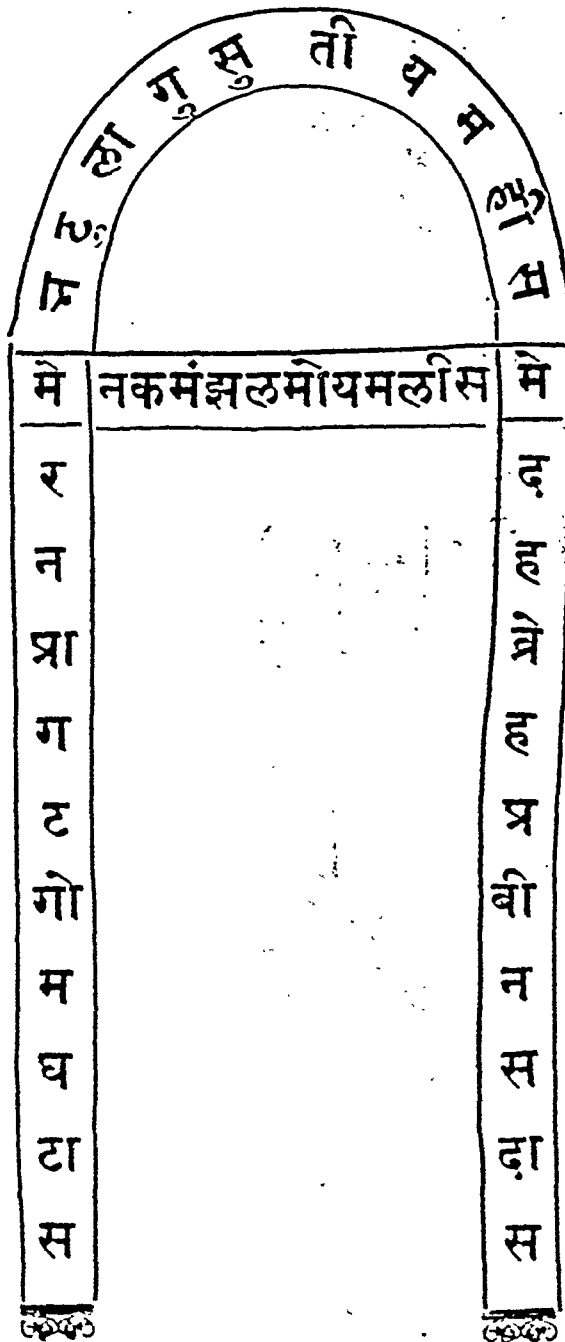 ला गु सु ती य म स
मे नकमंझलमोयमलीस मे
न
प्रा
ग
ट
गो
म
घ
टा
स
द
ह
प्रे
ह
प्र
बी
न
स
दा
स